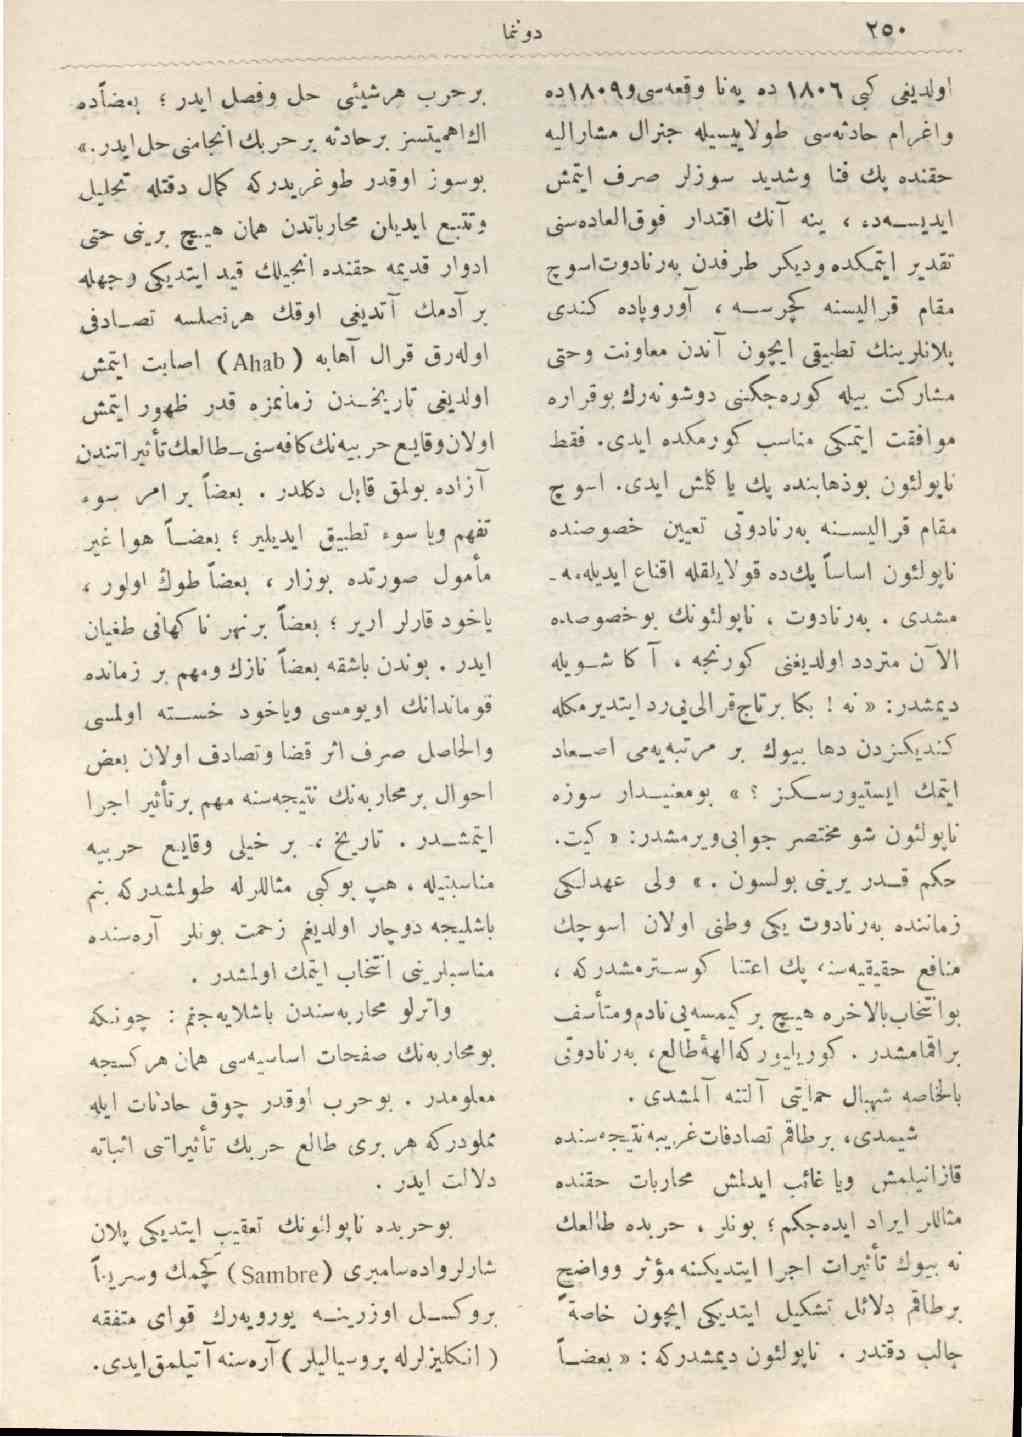 ٢٥٠
دوننما
اولدیغی كبی ١٨٠٦ ده یه‌نا وقعه‌سی و ١٨٠٩ده
واغرام حادثه‌سی طولاییسیله جنرال مشارالیه
حقنده پك فنا وشدید سوزلر صرف ایتمش
ایدیسه‌ده ، ینه آنك اقتدار فوق‌العاده‌سنی
تقدیر ایتمكده ودیكر طرفدن به‌رنادوت‌اسوج
مقام قرالیسنه كچرسه ، آوروپاده كندی
پلانلرینك تطبیقی ایچون آندن معاونت وحتی
مشاركت بیله كوره‌جكنی دوشونه‌رك بوقراره
موافقت ایتمكی مناسب كورمكده ایدی. فقط
ناپولئون بوذهابنده پك یاكلمش ایدی. اسوج
مقام قرالیسنه به‌رنادوتی تعیین خصوصنده
ناپولئون اساساً پك‌ده قولایلقله اقناع ایدیله‌مه‌ـ
مشدی . به‌رنادوت ، ناپولئونك بوخصوصده
الآن متردد اولدیغنی كورنجه ، آكا شویله
دیمشدر: « نه ! بكا برتاج‌قرالی‌یی‌رد ایتدیرمكله
كندیكزدن دها بیوك بر مرتبه‌یه‌می اصعاد
ایتمك ایستیورسكز ؟ » بومعنیدار سوزه
ناپولئون شو مختصر جوابی‌ویرمشدر: « كیت.
حكم قدر یرینی بولسون . » ولی عهدلكی
زماننده به‌رنادوت یكی وطنی اولان اسوجك
منافع حقیقیه‌سنه پك اعتنا كوسترمشدركه ،
بوانتخاب‌بالاخره هیچ بر كیمسه‌یی‌نادم‌ومتأسف
براقمامشدر . كوریلیوركه‌الهۀطالع، به‌رنادوتی
بالخاصه شهبال حمایتی آلتنه آلمشدی .
شیمدی، برطاقم تصادفات‌غریبه‌نتیجه‌سنده
قازانیلمش ویا غائب ایدلمش محاربات حقنده
مثاللر ایراد ایده‌جكم؛ بونلر ، حربده طالعك
نه بیوك تأثیرات اجرا ایتدیكنه مؤثر وواضح
برطاقم دلائل تشكیل ایتدیكی ایچون خاصةً
جالب دقتدر . ناپولئون دیمشدركه : « بعضاً
برحرب هرشیئی حل وفصل ایدر ؛ بعضاًده
اك‌اهمیتسز برحادثه برحربك انجامنی‌حل‌ایدر.»
بوسوز اوقدر طوغریدركه كمال دقتله تحلیل
وتتبع ایدیلن محارباتدن همان هیچ برینی حتی
ادوار قدیمه حقنده انجیلك قید ایتدیكی وجهله
بر آدمك آتدیغی اوقك هرنصلسه تصادفی
اوله‌رق قرال آهابه (Ahab) اصابت ایتمش
اولدیغی تاریخدن زمانمزه قدر ظهور ایتمش
اولان‌وقایع حربیه‌نك‌كافه‌سنی‌ـ‌طالعك‌تأثیراتندن
آزاده بولمق قابل دكلدر . بعضاً بر امر سوء
تفهم ویا سوء تطبیق ایدیلیر ؛ بعضاً هوا غیر
مأمول صورتده بوزار ، بعضاً طوك اولور ،
یاخود قارلر اریر ؛ بعضاً برنهر ناكهانی طغیان
ایدر . بوندن باشقه بعضاً نازك ومهم بر زمانده
قوماندانك اویومسی ویاخود خسته اولمسی
والحاصل صرف اثر قضا وتصادف اولان بعض
احوال برمحاربه‌نك نتیجه‌سنه مهم برتأثیر اجرا
ایتمشدر . تاریخ ، بر خیلی وقایع حربیه
مناسبتیله ، هپ بوكبی مثاللرله طولمشدركه بنم
باشلیجه دوچار اولدیغم زحمت بونلر آره‌سنده
مناسبلرینی انتخاب ایتمك اولمشدر .
واترلو محاربه‌سندن باشلایه‌جغم : چونكه
بومحاربه‌نك صفحات اساسیه‌سی همان هركسجه
معلومدر . بوحرب اوقدر چوق حادثات ایله
مملودركه هر بری طالع حربك تأثیراتی اثباته
دلالت ایدر .
بوحربده ناپولئونك تعقیب ایتدیكی پلان
شارلرواده‌سامبری (Sambre) كچمك وسریعاً
بروكسل اوزرینه یورویه‌رك قوای متفقه
( انكلیزلرله پروسیالیلر ) آره‌سنه آتیلمق‌ایدی.